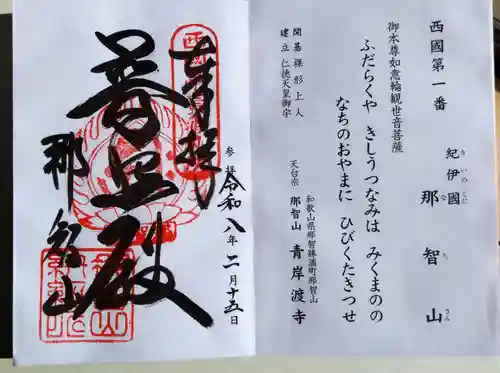 西國第一番
紀伊國
きいのくに
那智山
なちさん
御本尊如意輪観世音菩薩
ふだらくや きしうつなみは みくまのの
なちのおやまに ひびくたきつせ
開基 裸形上人
建立 仁徳天皇御宇
天台宗
和歌山県那智勝浦町那智山
那智山 青岸渡寺
奉拝
普照殿
那智山
参拝 令和八年二月十五日